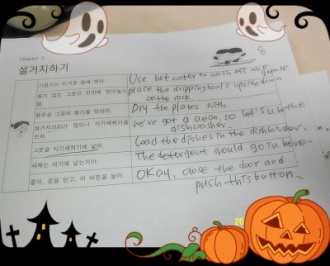 Chapter 5
설거지하기
기름기는 뜨거운 물에 닦아.
Use hot water to wash off any grease
물기 있는 그릇은 선반에 엎어놓아
place the dripping bowls upside down
on the rack
행주로 그릇의 물기를 닦아라.
Dry the plates with
설거지거리가 많으니 식기세척기를
쓰자.
we've got a ,so let's use the
dishwasher
그릇을 식기세척기에 넣어.
Load the dishes in the dishwasher.
세제는 여기에 넣는거야.
The detergent would go in here.
좋아, 문을 닫고, 이 버튼을 눌러.
Okay, close the door and
push this button.
8
20